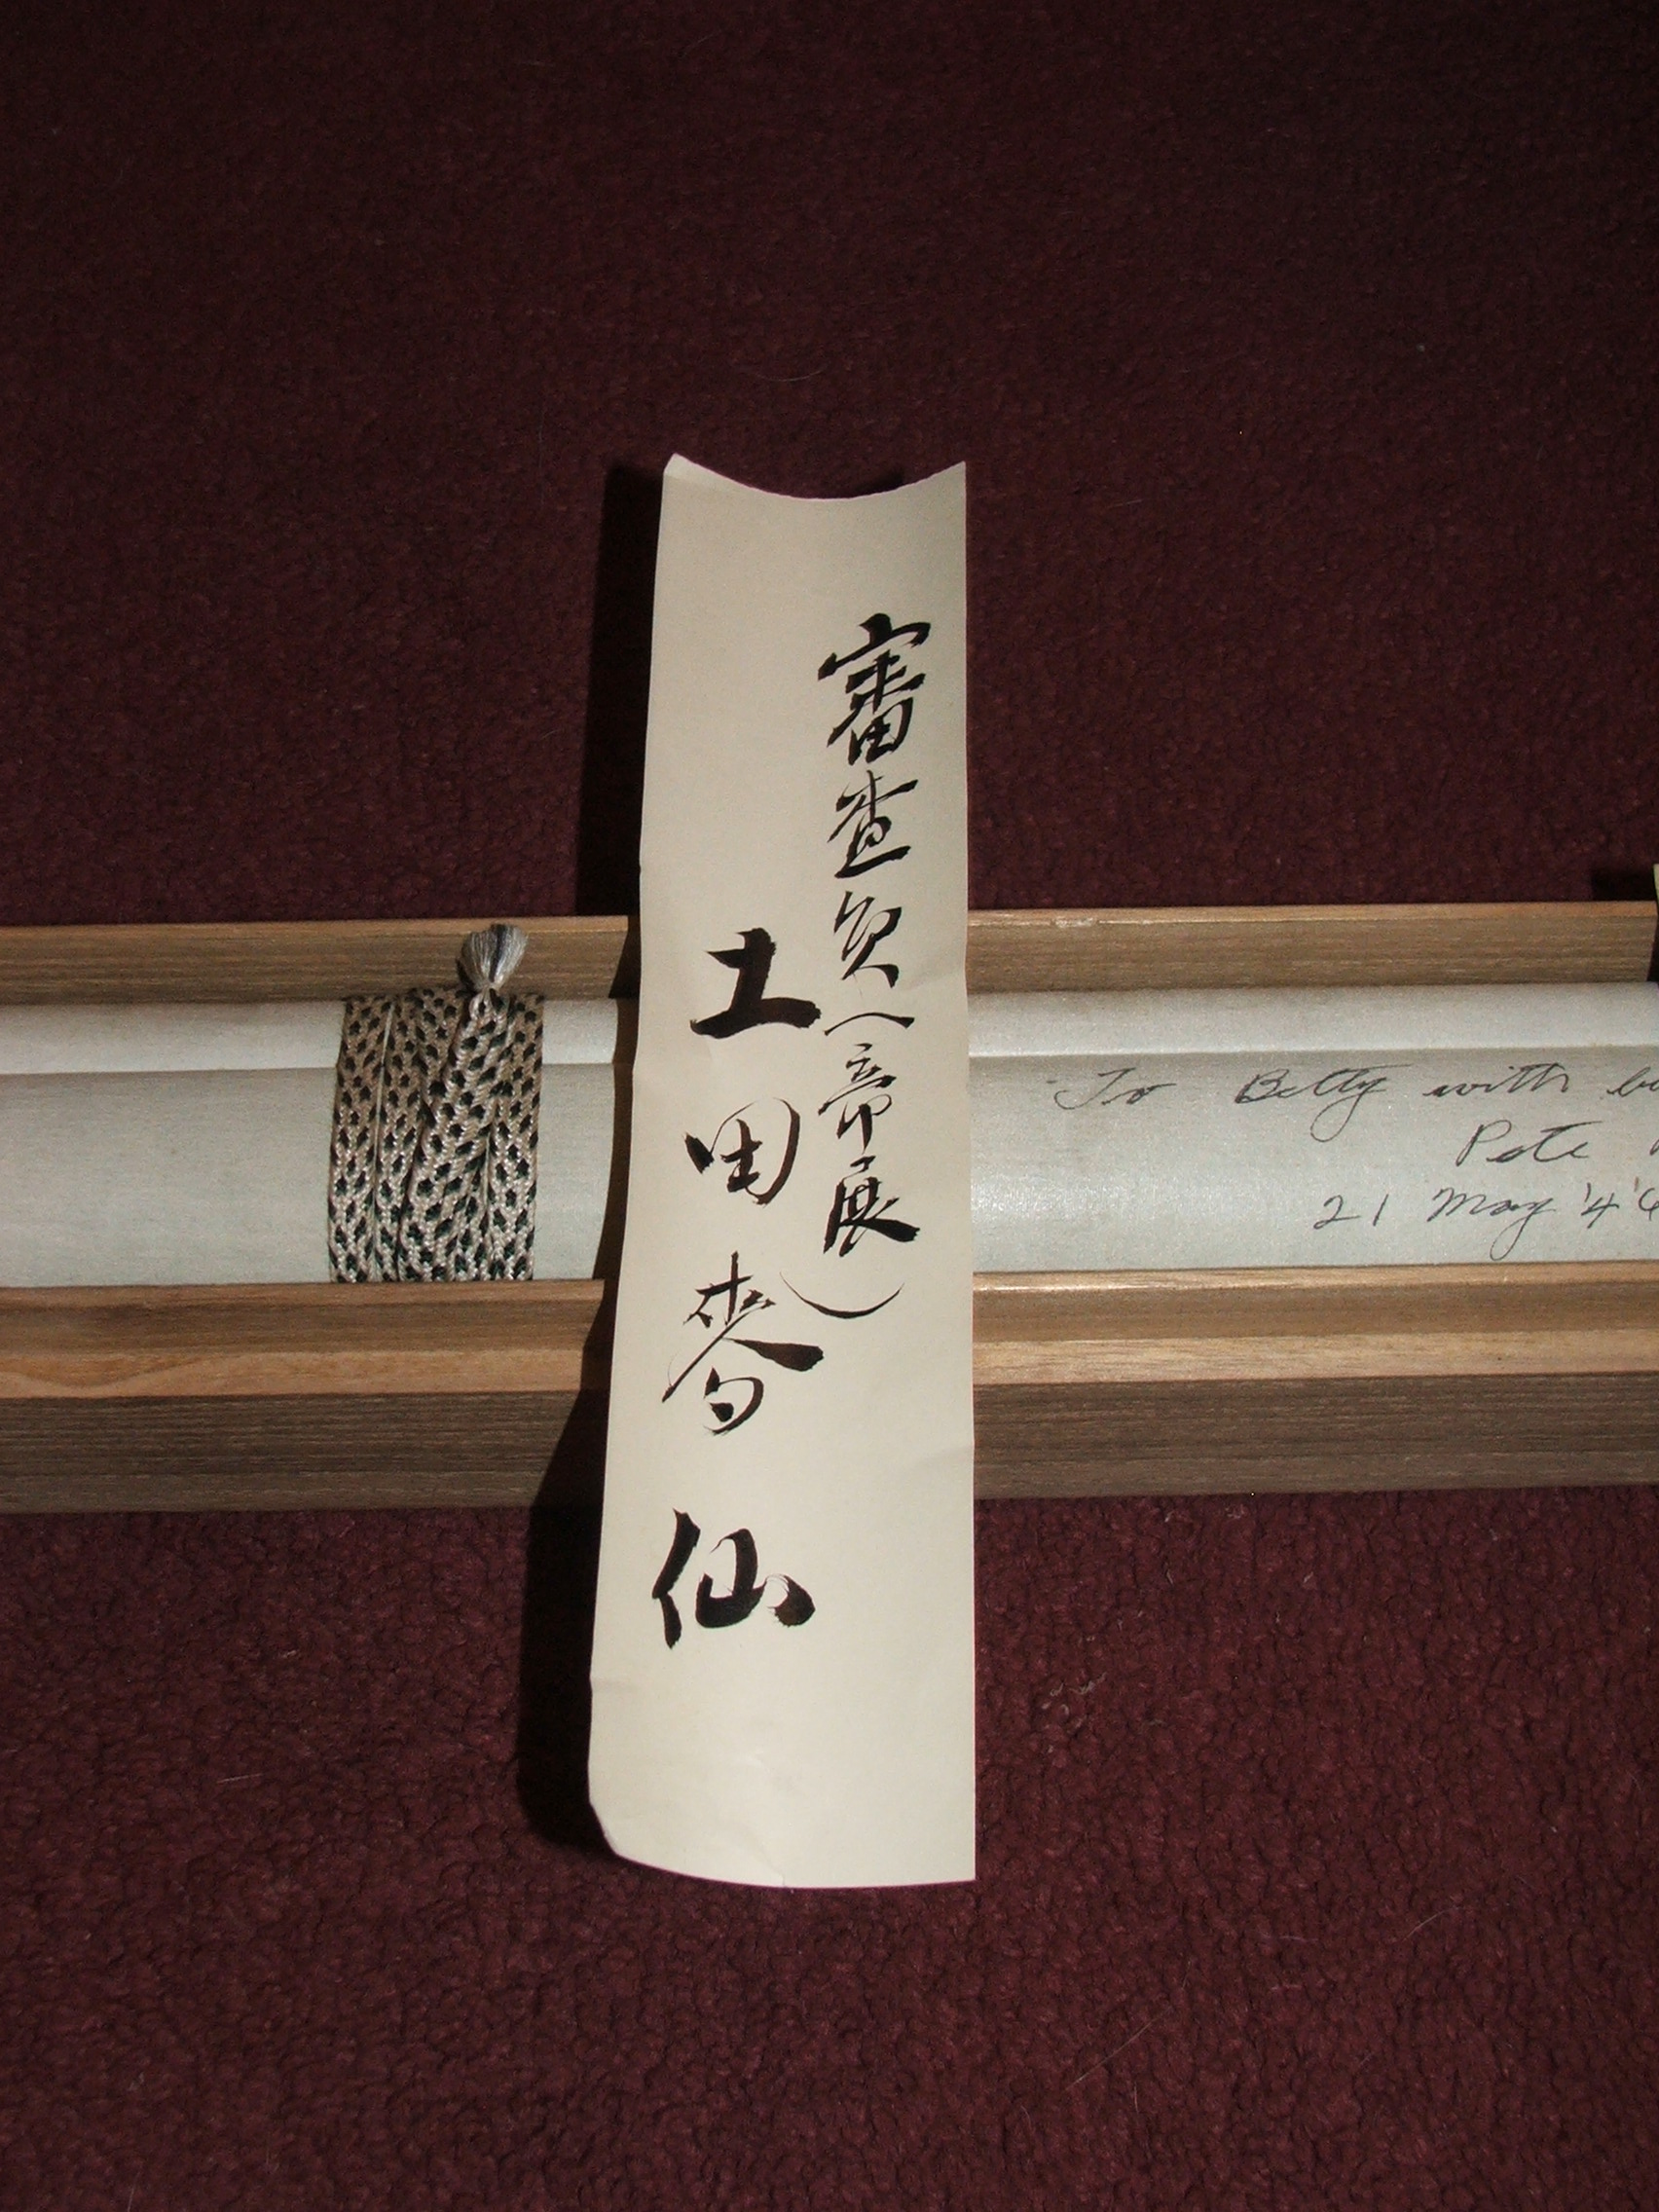 審査員（帝展）
土田麥仙
To Betty with
Pete
21 May '46